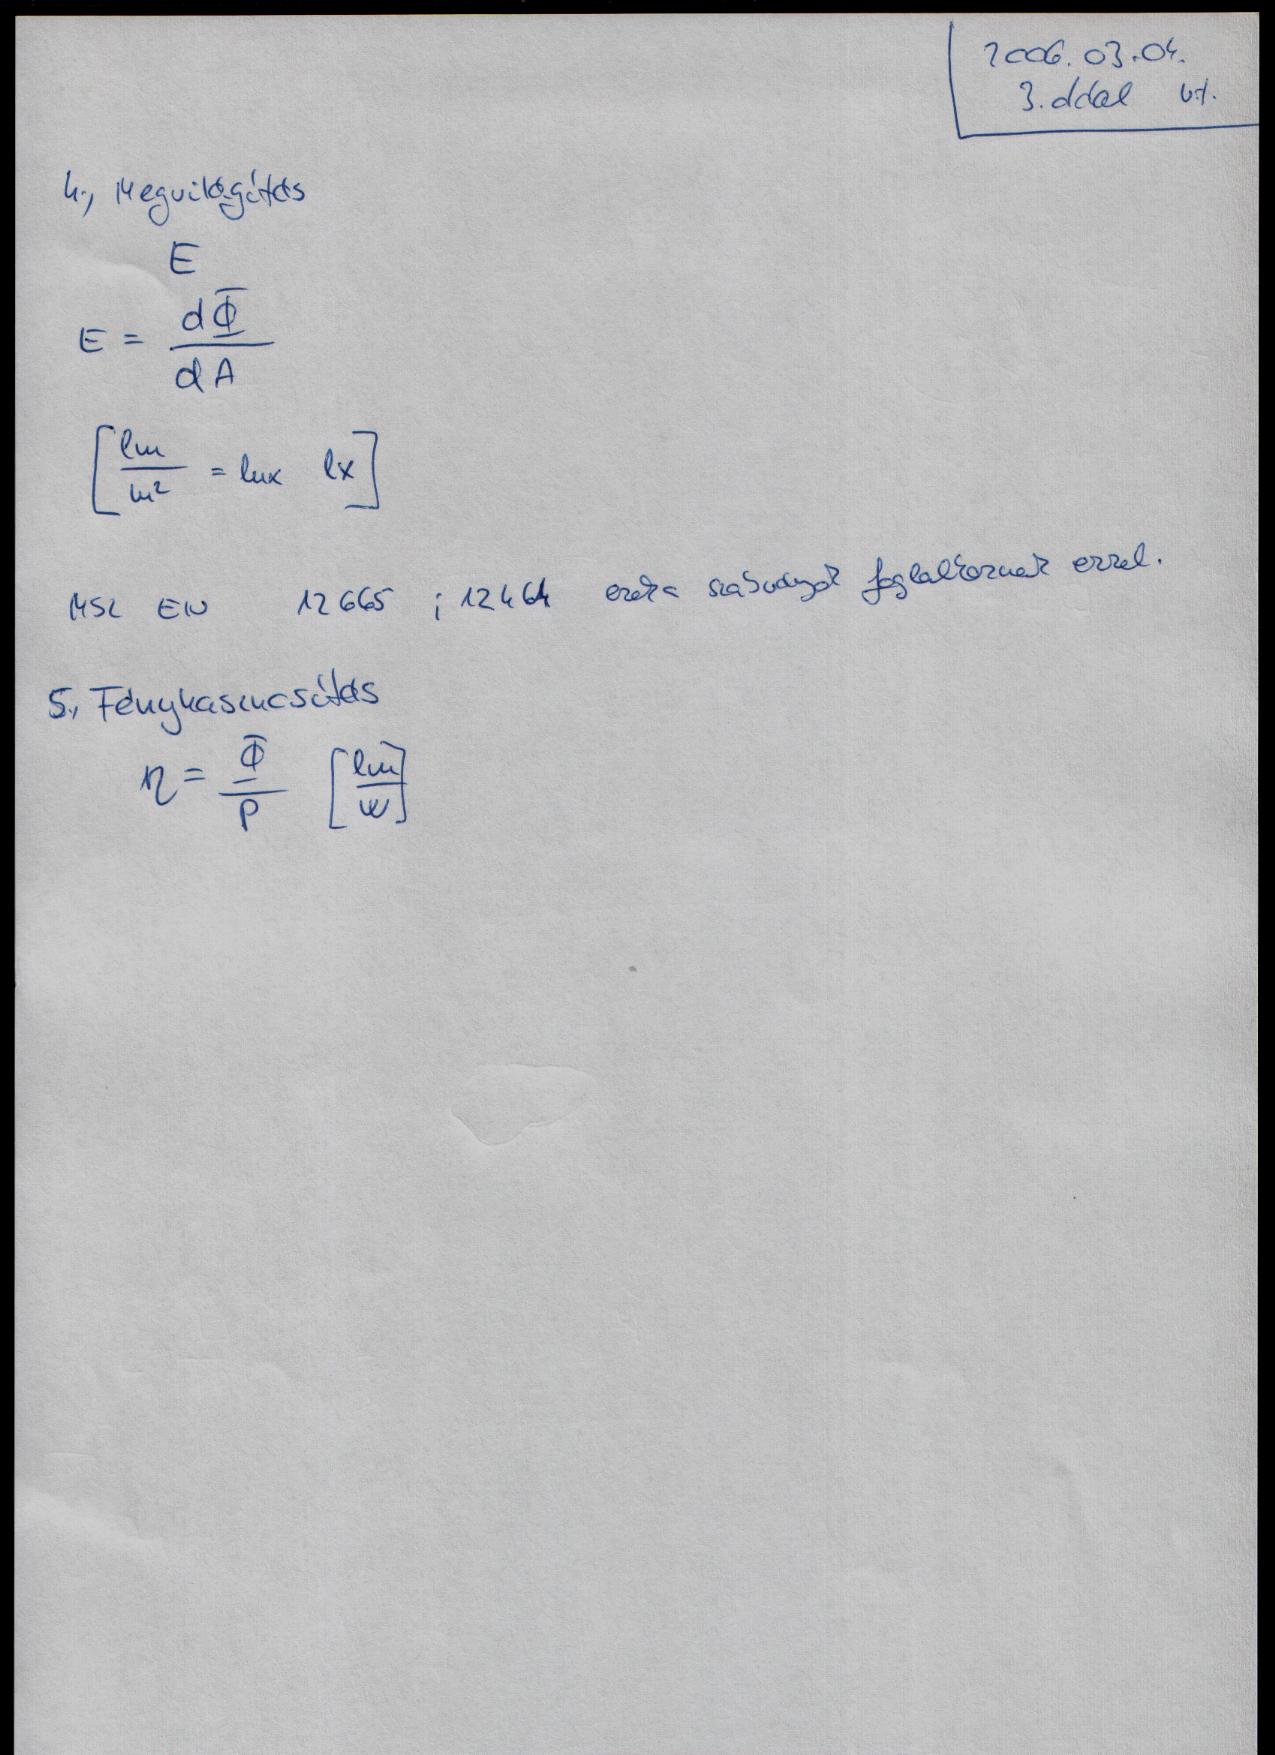 2006.03.04.
3. oldal
4., Megvilágítás
E
E = dΦ / dA
[lm / m² = lux lx]
MSZ EN 12665 ; 12464 ezek a szabványok foglalkoznak ezzel.
5., Fényhasznosítás
η = Φ / P [lm / W]